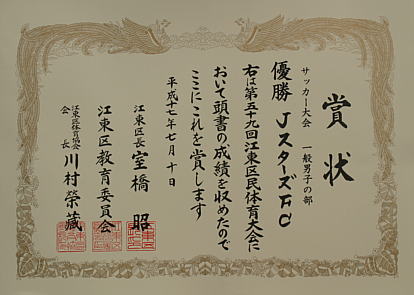 賞状
サッカー大会 一般男子の部
優勝 JスターズFC
右は第五十九回江東区民体育大会に
おいて頭書の成績を収めたので
ここにこれを賞します
平成十七年七月十日
江東区長 室橋 昭
江東区教育委員会
江東区体育協会
会長 川村榮藏